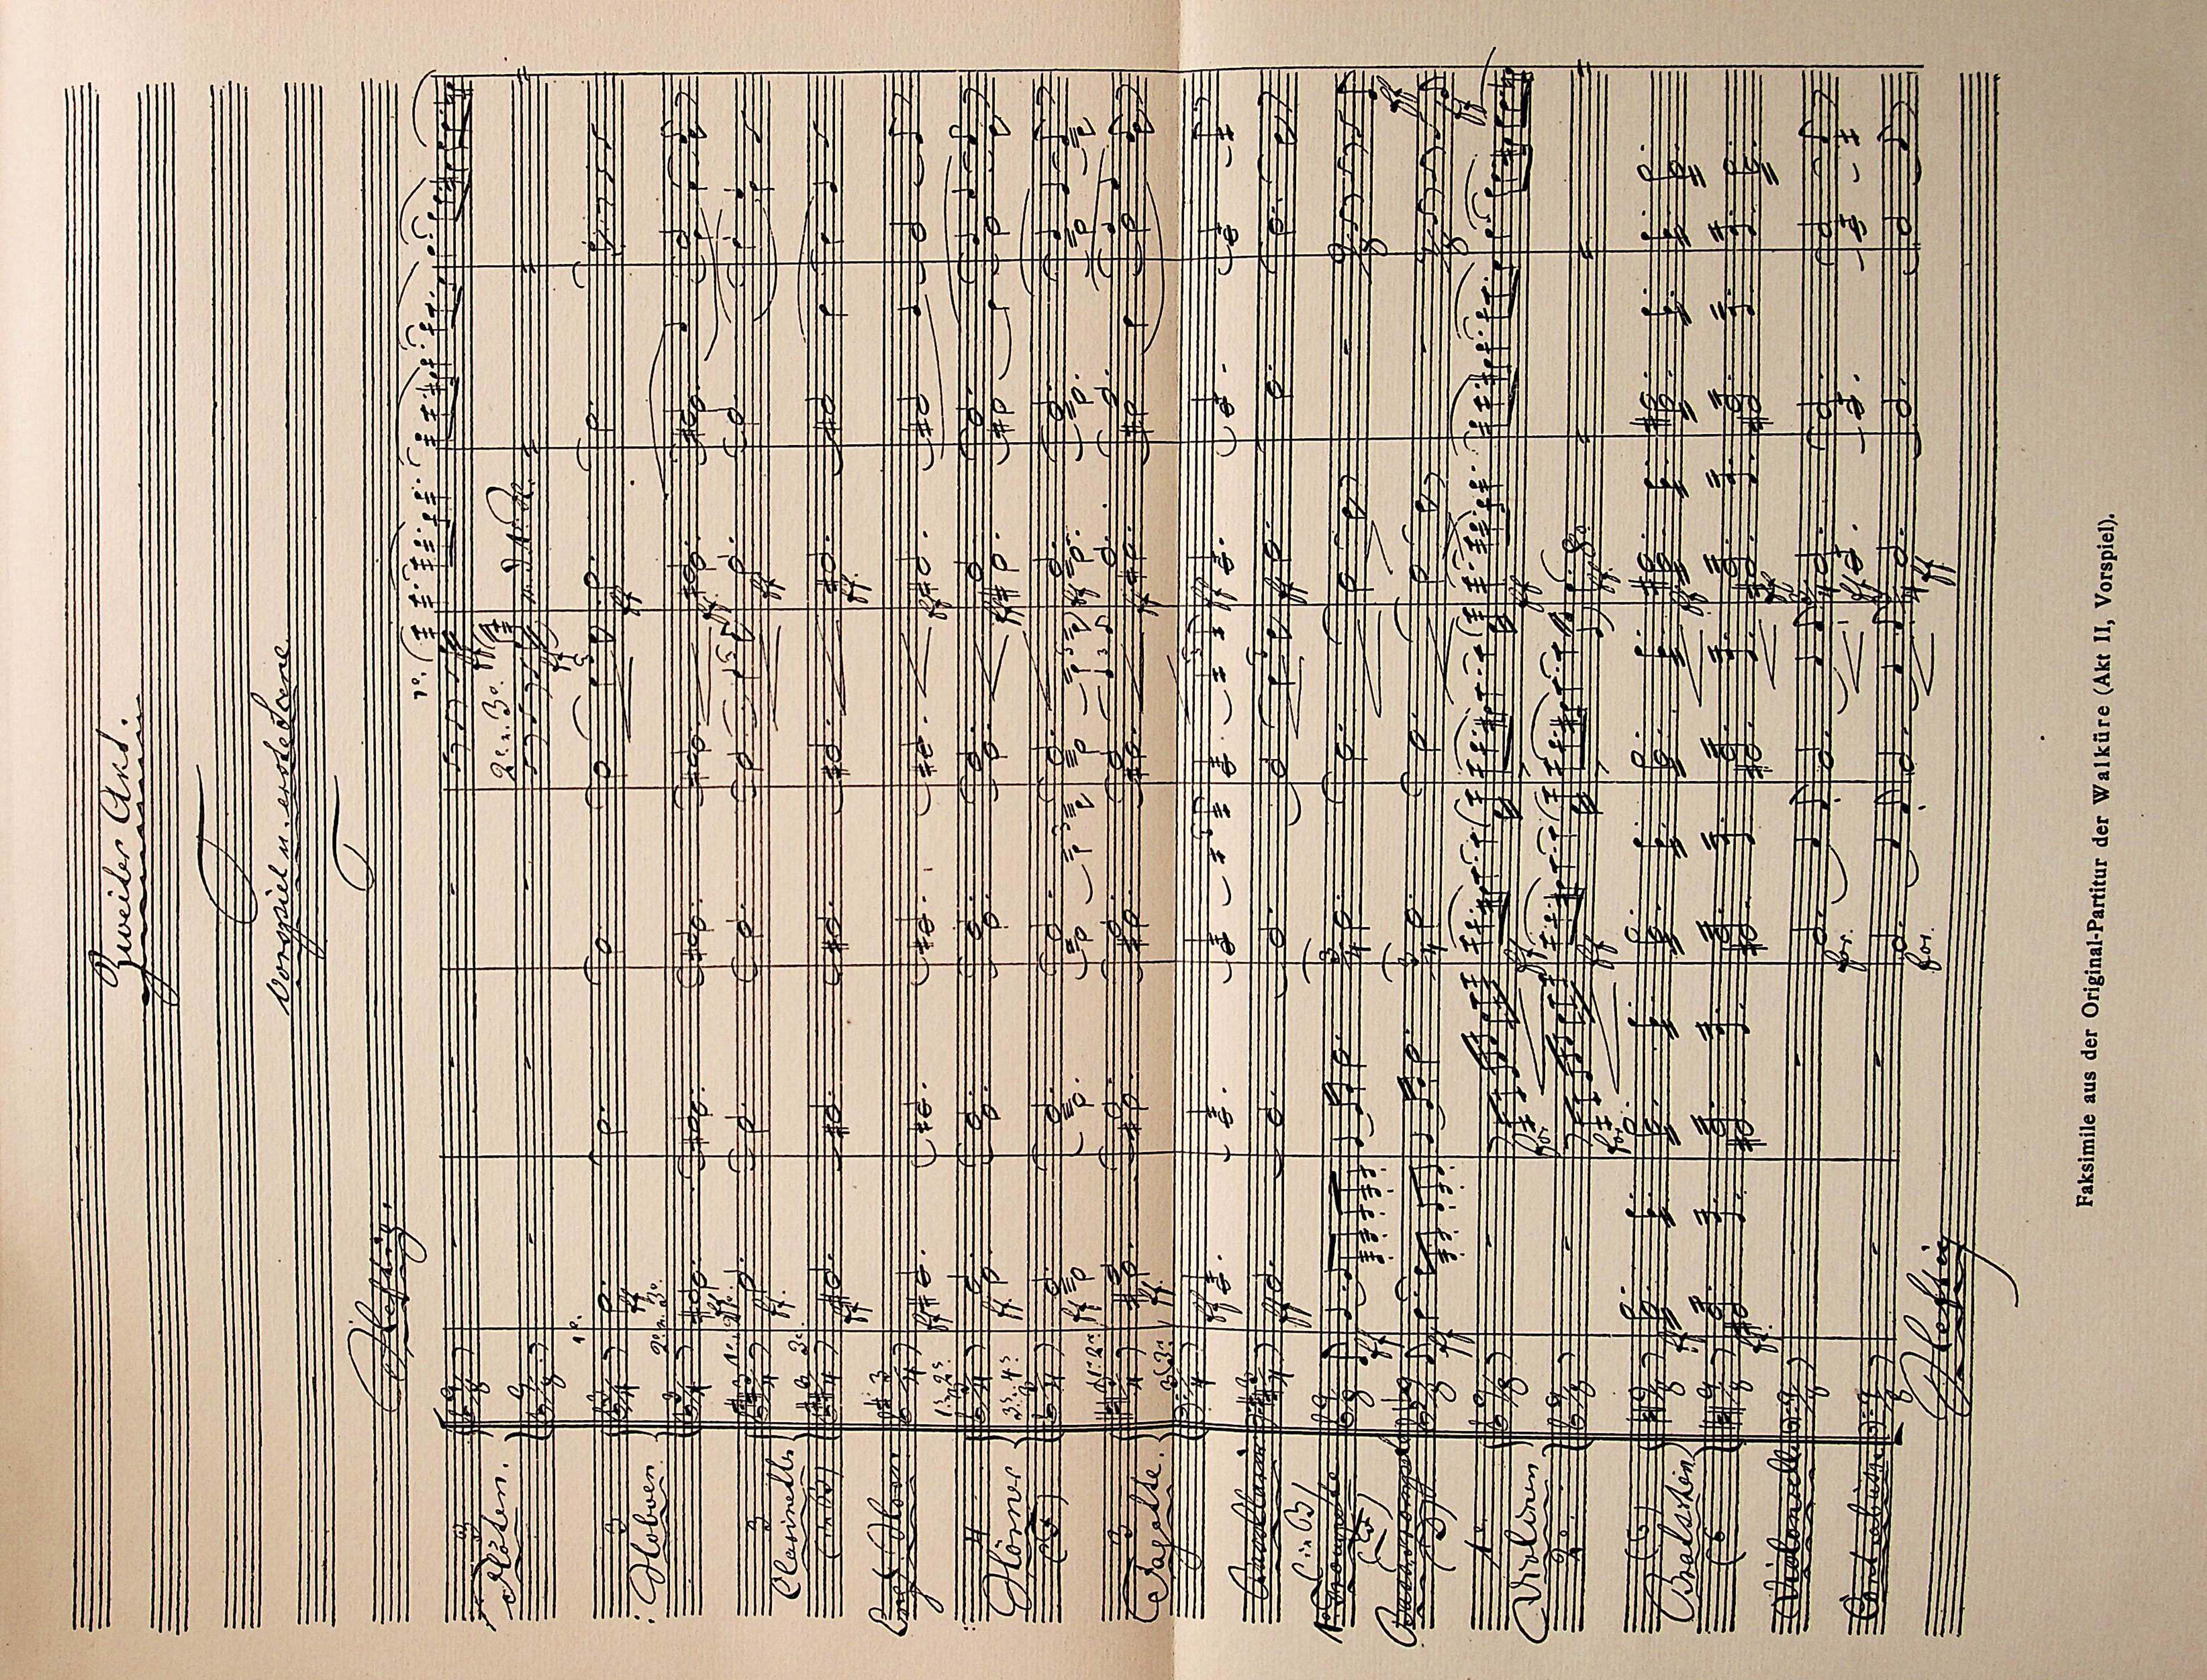 Zweiter Akt.
Vorspiel u. erste Scene.
Heftig.
3 Flöten.
3 Hoboen.
3 Clarinetten
Engl. Horn
4 Hörner
3 Fagotte.
Bassclarin
(in B)
1e Trompete
Basstrompete
(D)
1e Violinen
2e
(6) Bratschen
(6
Violoncelle
Contrabässe
Heftig
Faksimile aus der Original-Partitur der Walküre (Akt II, Vorspiel).